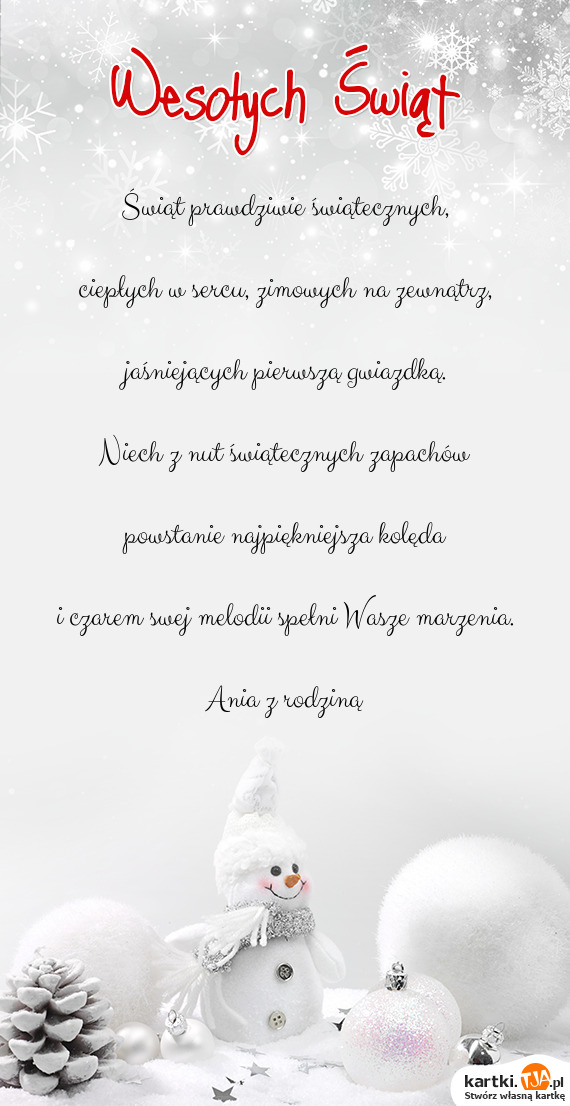 Wesołych Świąt
Świąt prawdziwie świątecznych,
ciepłych w sercu, zimowych na zewnątrz,
jaśniejących pierwszą gwiazdką.
Niech z nut świątecznych zapachów
powstanie najpiękniejsza kolęda
i czarem swej melodii spełni Wasze marzenia.
Ania z rodziną
kartki.TJA.pl
Stwórz własną kartkę